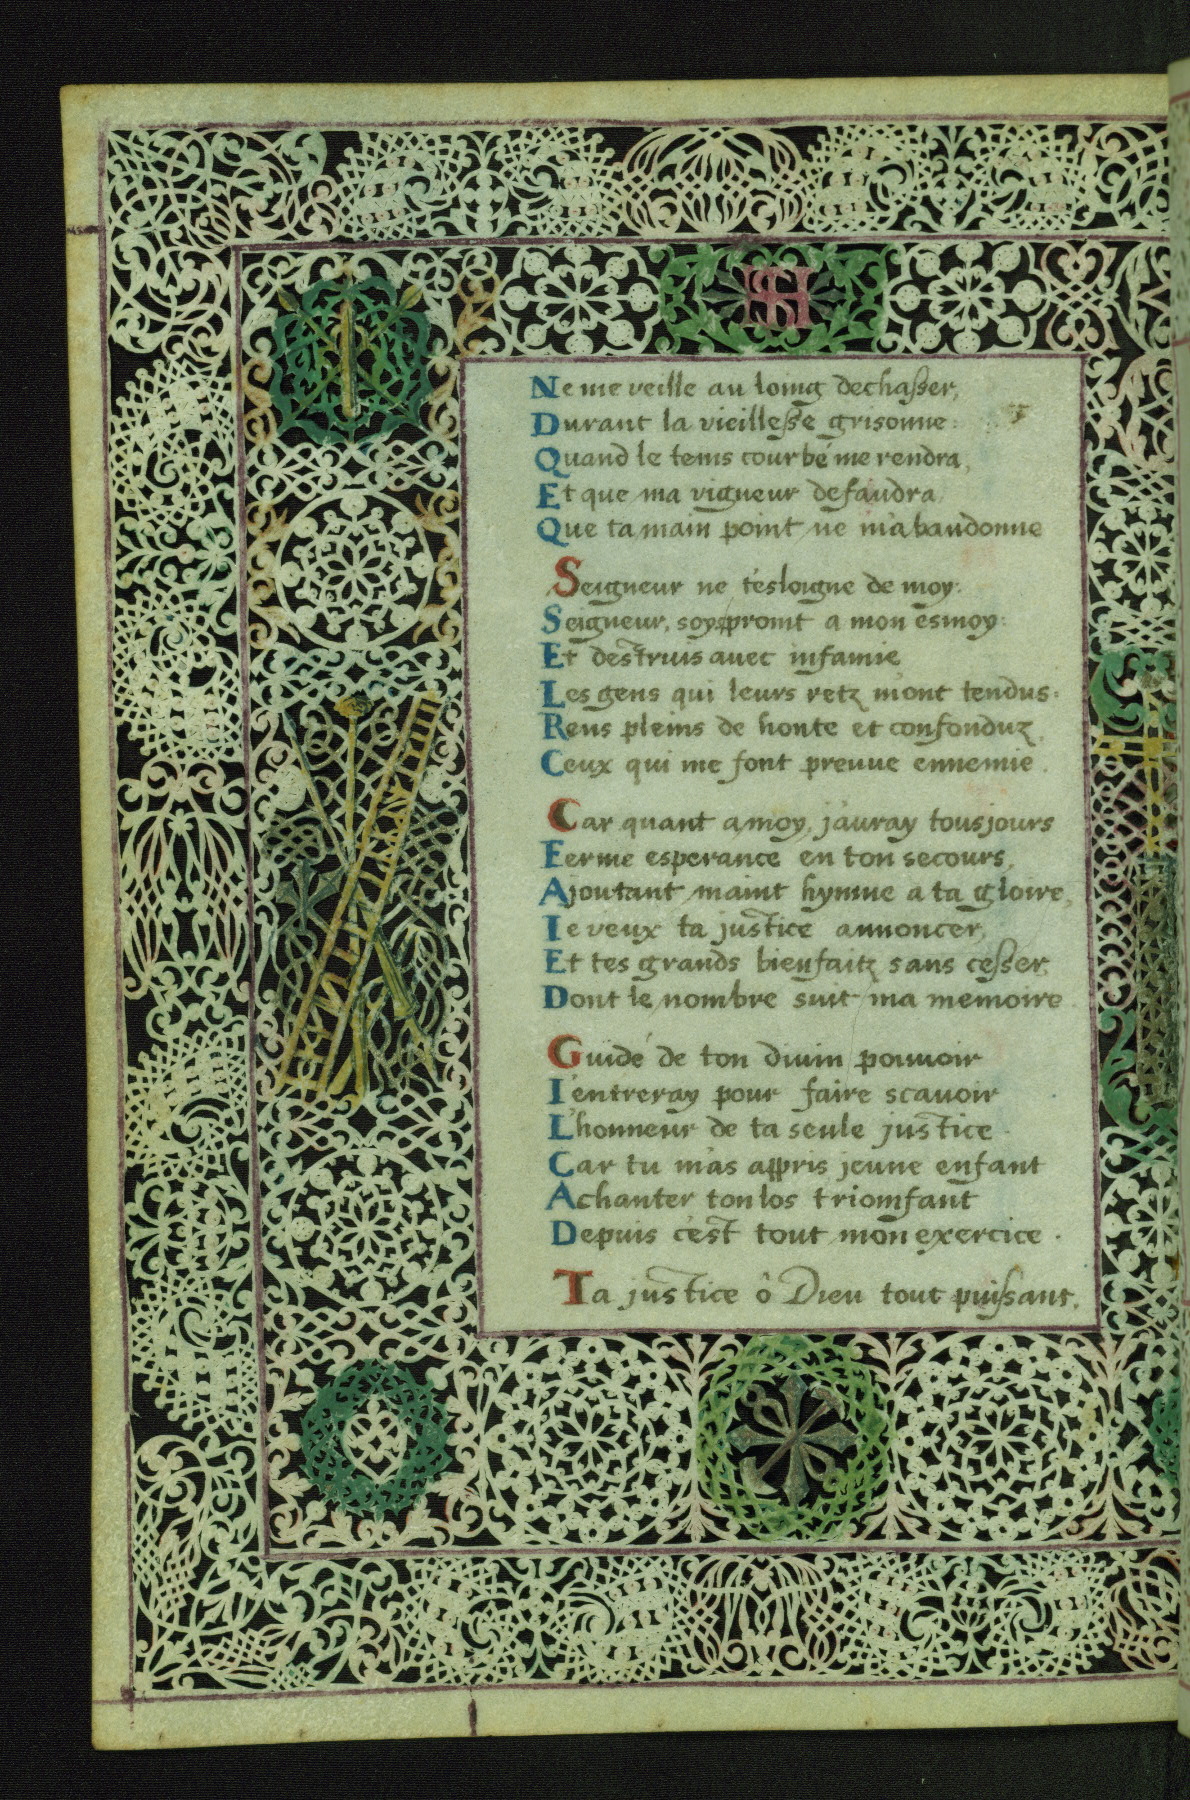 Ne me veille au loing dechasser,
Durant la vieillesse grisonne:
Quand le tems courbé me rendra,
Et que ma vigueur defaudra,
Que ta main point ne m'abandonne
Seigneur ne t'esloigne de moy:
Seigneur, soys promt a mon esmoy:
Et destruis avec infamie
Les gens qui leurs retz m'ont tendus:
Rens pleins de honte et confonduz,
Ceux qui me font preuve ennemie.
Car quant a moy, j'auray tousjours
Ferme esperance en ton secours,
Ajoutant maint hymne a ta gloire,
Ie veux ta justice annoncer,
Et tes grands bienfaitz sans cesser,
Dont le nombre suit ma memoire.
Guidé de ton divin pouvoir
I'entreray pour faire scavoir
L'honneur de ta seule justice.
Car tu m'as appris jeune enfant
A chanter ton los triomfant
Depuis c'est tout mon exercice.
Ta justice ô Dieu tout puissant,